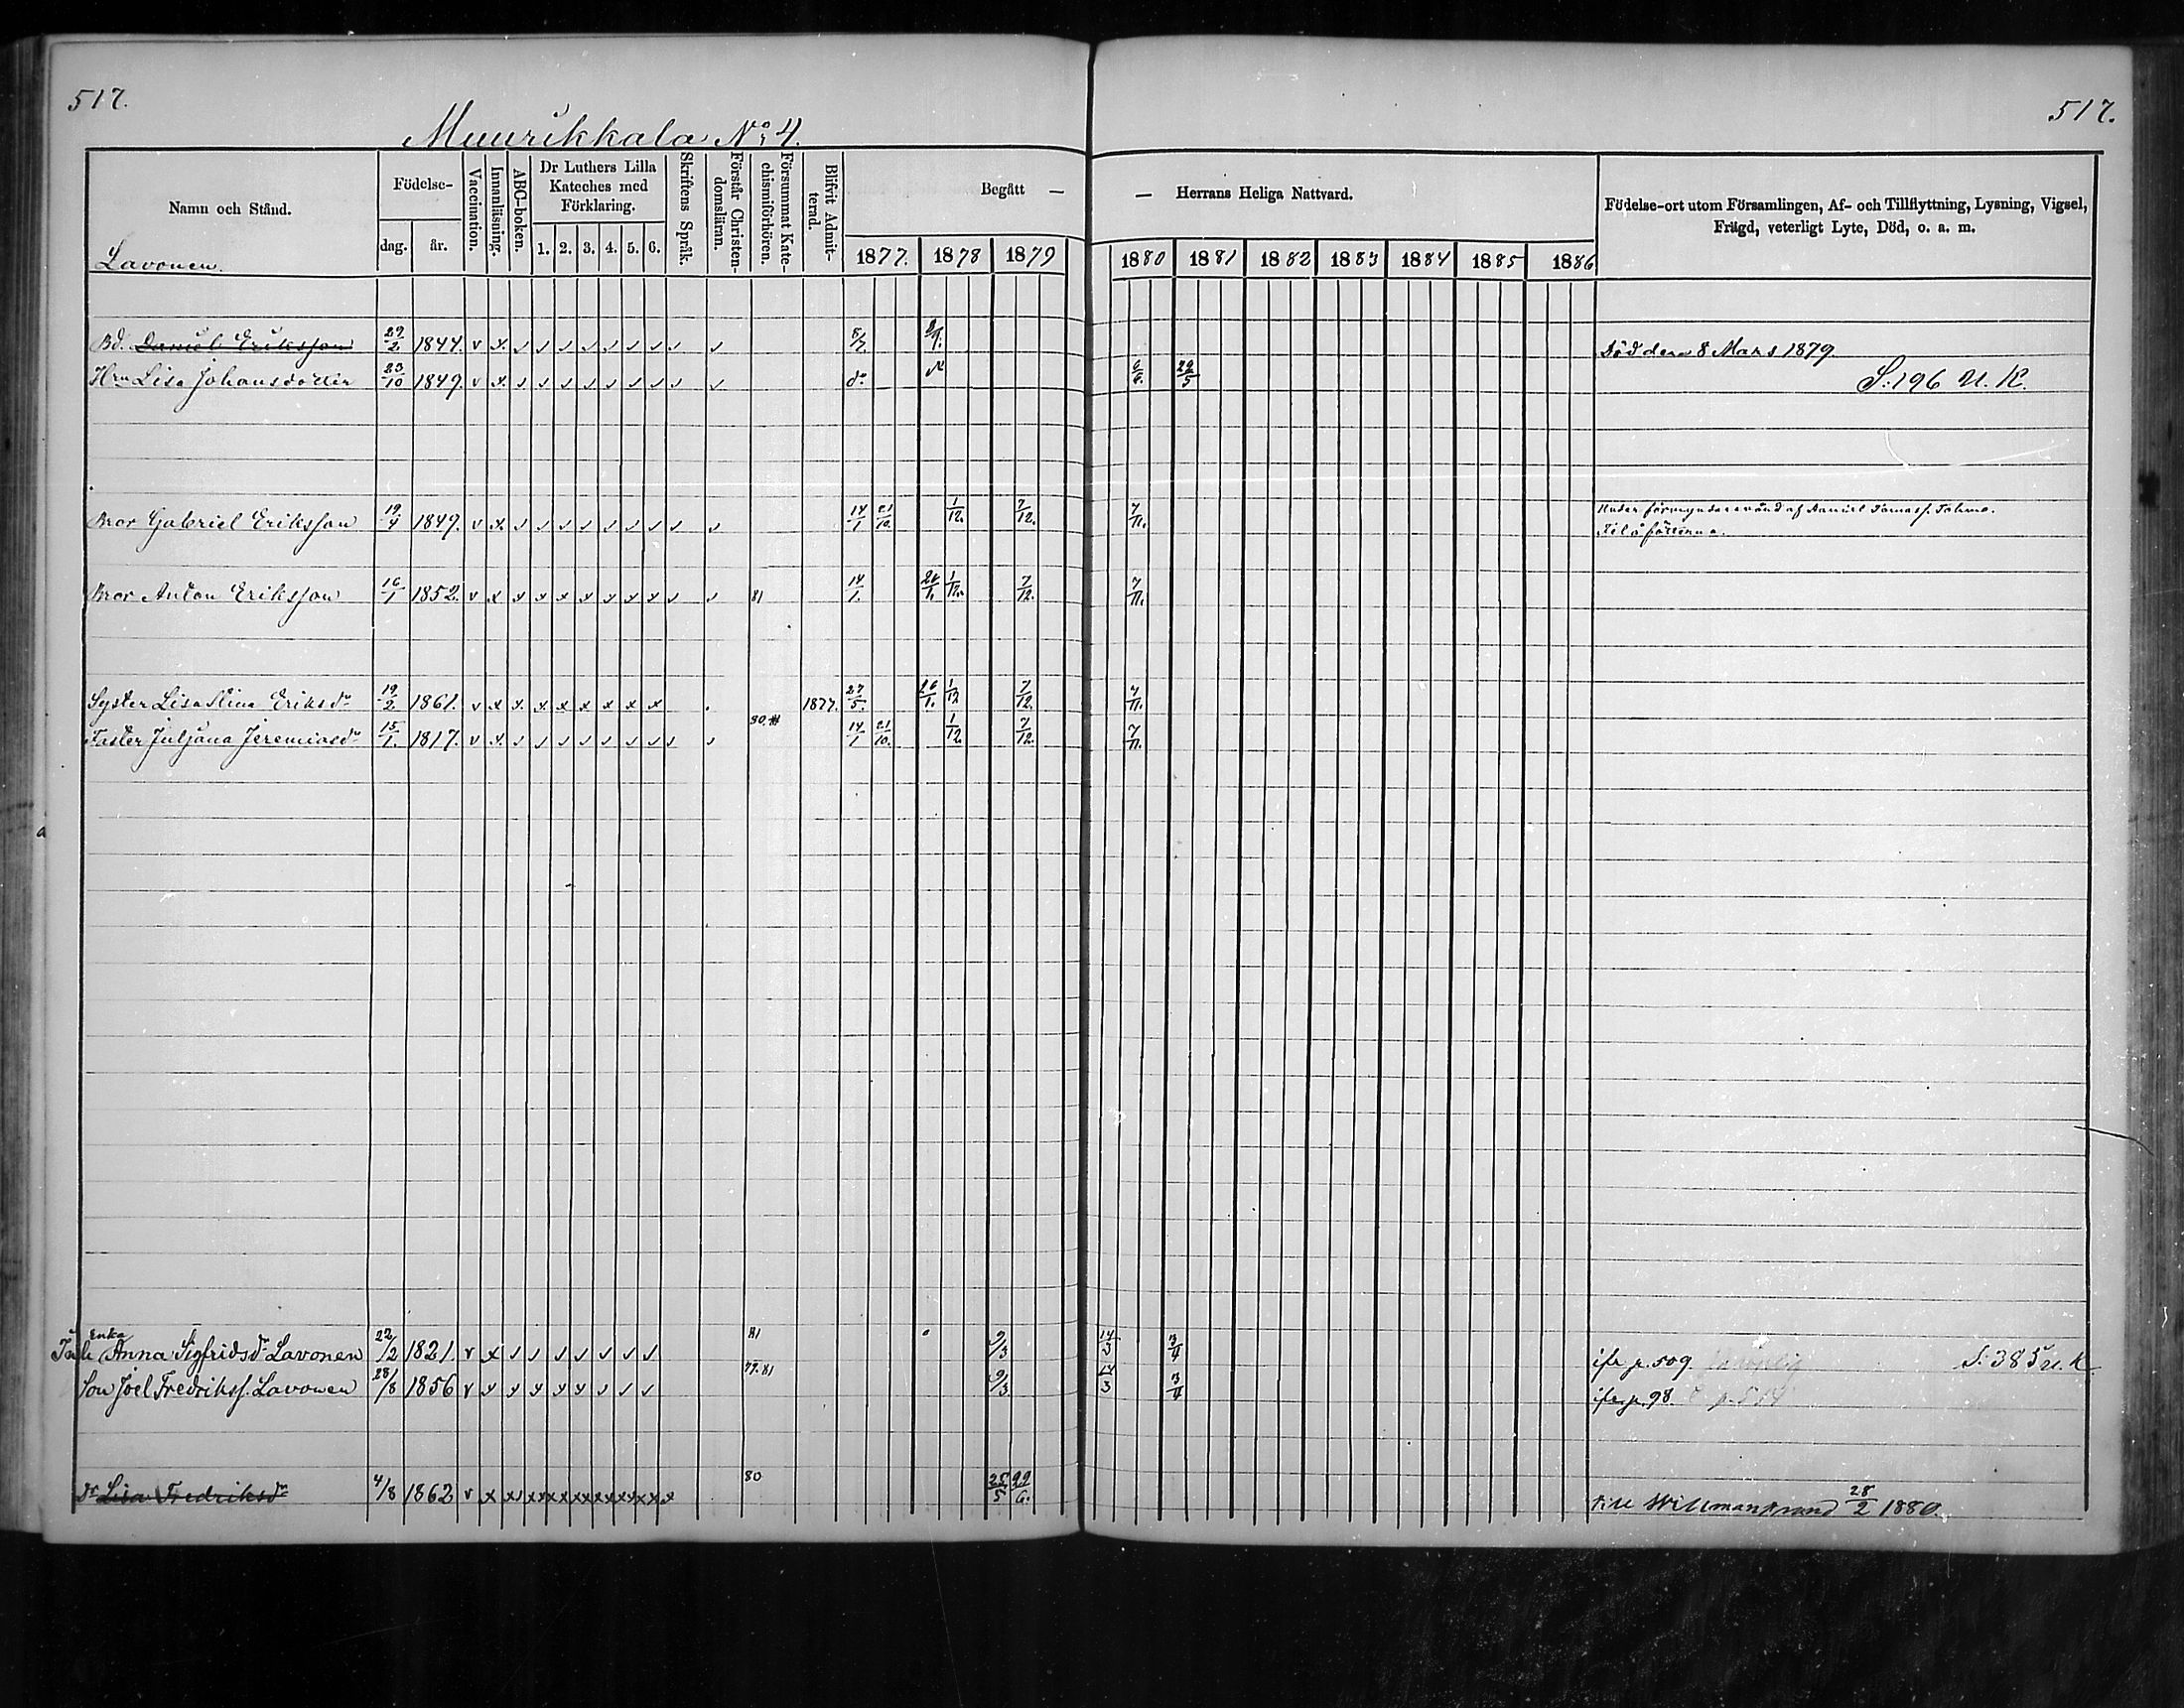 517.
517.
Muurikkala No: 4.
Namn och Stånd.
Lavonen.
Födelse-
dag.
år.
Vaccination.
Innanläsning.
ABC-boken.
Dr Luthers Lilla Kateches med Förklaring.
1. 2. 3. 4. 5. 6.
Skriftens Språk.
Förstår Christen-domsläran.
Försummat Kate-chismiförhören.
Blifvit Admit-terad.
Begått — — Herrans Heliga Nattvard.
1877. 1878 1879 1880 1881 1882 1883 1884 1885 1886
Födelse-ort utom Församlingen, Af- och Tillflyttning, Lysning, Vigsel, Frägd, veterligt Lyte, Död, o. a. m.
Bd. Daniel Eriksson 29/2 1844. v x. 8/7. Död den 8 Mars 1879.
Hru Lisa Johansdotter 23/10 1849. v x. do 6/6. 22/5 S: 196 U. K.
Bror Gabriel Eriksson 19/4 1849. v x. 14/1 21/10. 1/12. 7/12. 7/11. Under förmynderevård af Daniel Tomass. Tahmo.
Bror Anton Eriksson 16/1 1852. v x x x x x x x x 81 14/1. 26/1. 1/12. 7/12. 7/11.
Syster Lisa Stina Eriksdr 19/2 1861. v x x. x x x x x x 1877. 27/5. 26/1. 1/12 7/12. 7/11.
Faster Juljana Jeremiasdr 15/1. 1817. v x. 14/1 21/10. 1/12. 7/12. 7/11.
Enka Anna Sigfridsdr Lavonen 22/2 1821. v x 81 9/3 14/3 3/4 ifr p. 509. S: 385 u. K
Son Joel Fredrikss. Lavonen 28/8 1856 v x x x x x 79. 81 9/3 14/3 3/4 ifr p. 98. p. 514
dr Lisa Fredriksdr 4/8 1862 v x 80 25/5 29/6. till Willmanstrand 28/2 1880.